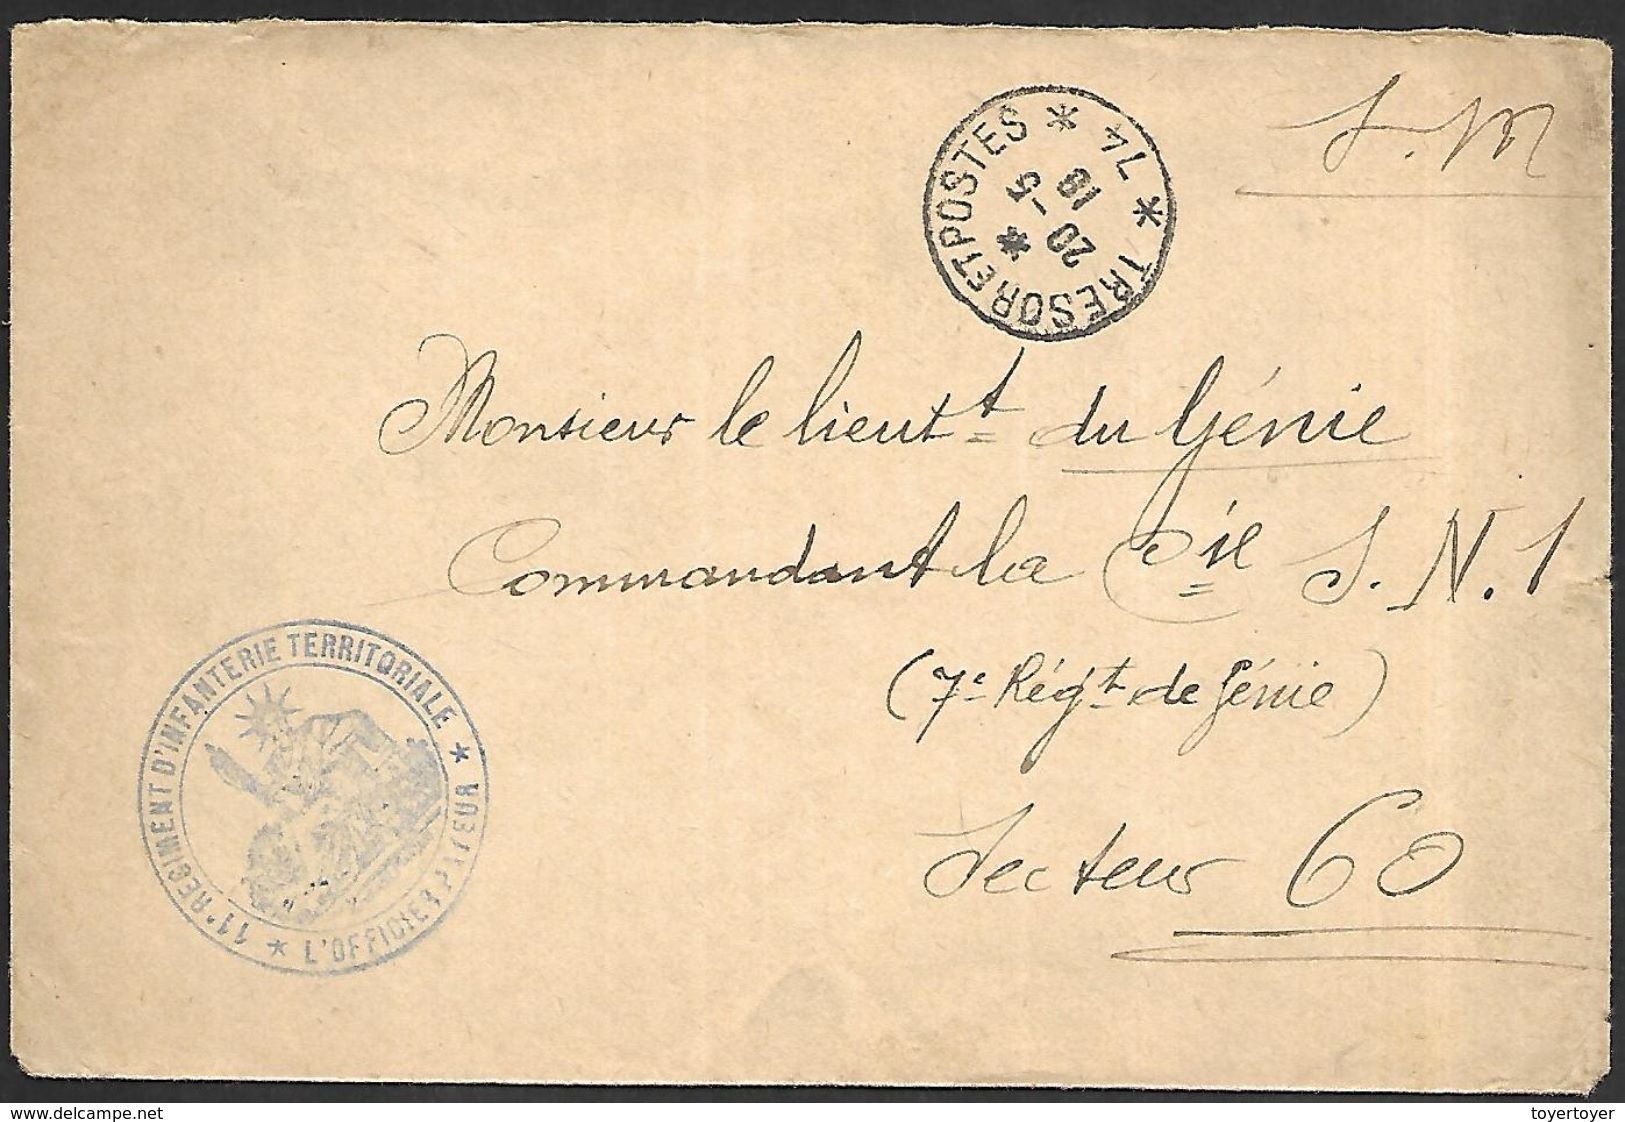 S.M
* TRESOR ET POSTES * 74
* 20 -5 18
Monsieur le lieut.t du Génie
Commandant la Cie S.N.1
(7e Rég.t de Génie)
Secteur 60
11e REGIMENT D'INFANTERIE TERRITORIALE *
* L'OFFICIER PAYEUR
www.delcampe.net
toyertoyer